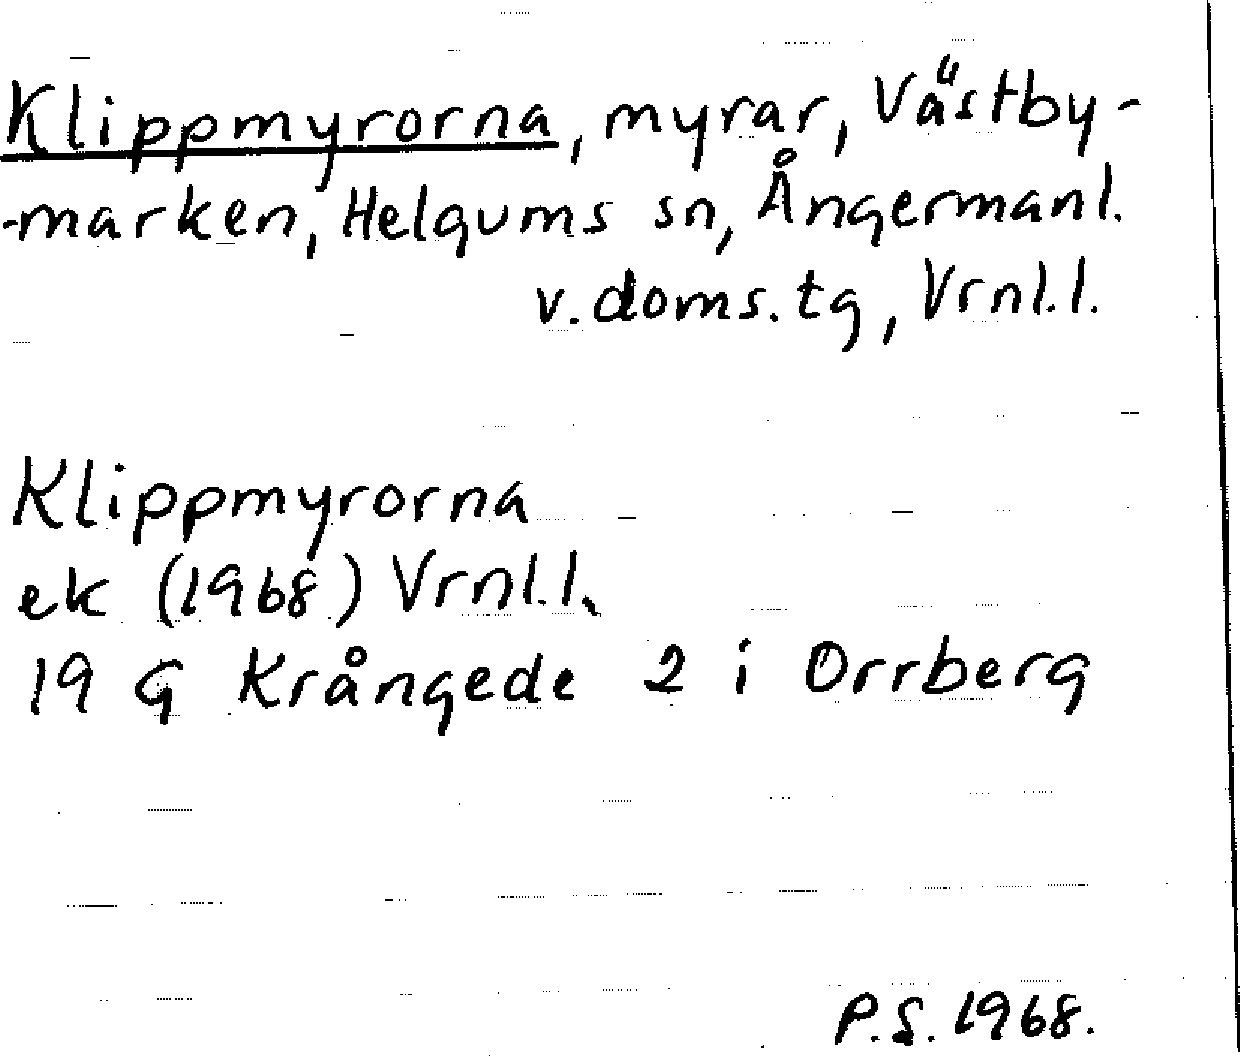 Klippmyrorna, myrar, Västby-
-marken, Helgums sn, Ångermanl.
v. doms. tg, Vrnl.l.
Klippmyrorna
ek (1968) Vrnl.l.
19 G Krångede 2 i Orrberg
P.S. 1968.